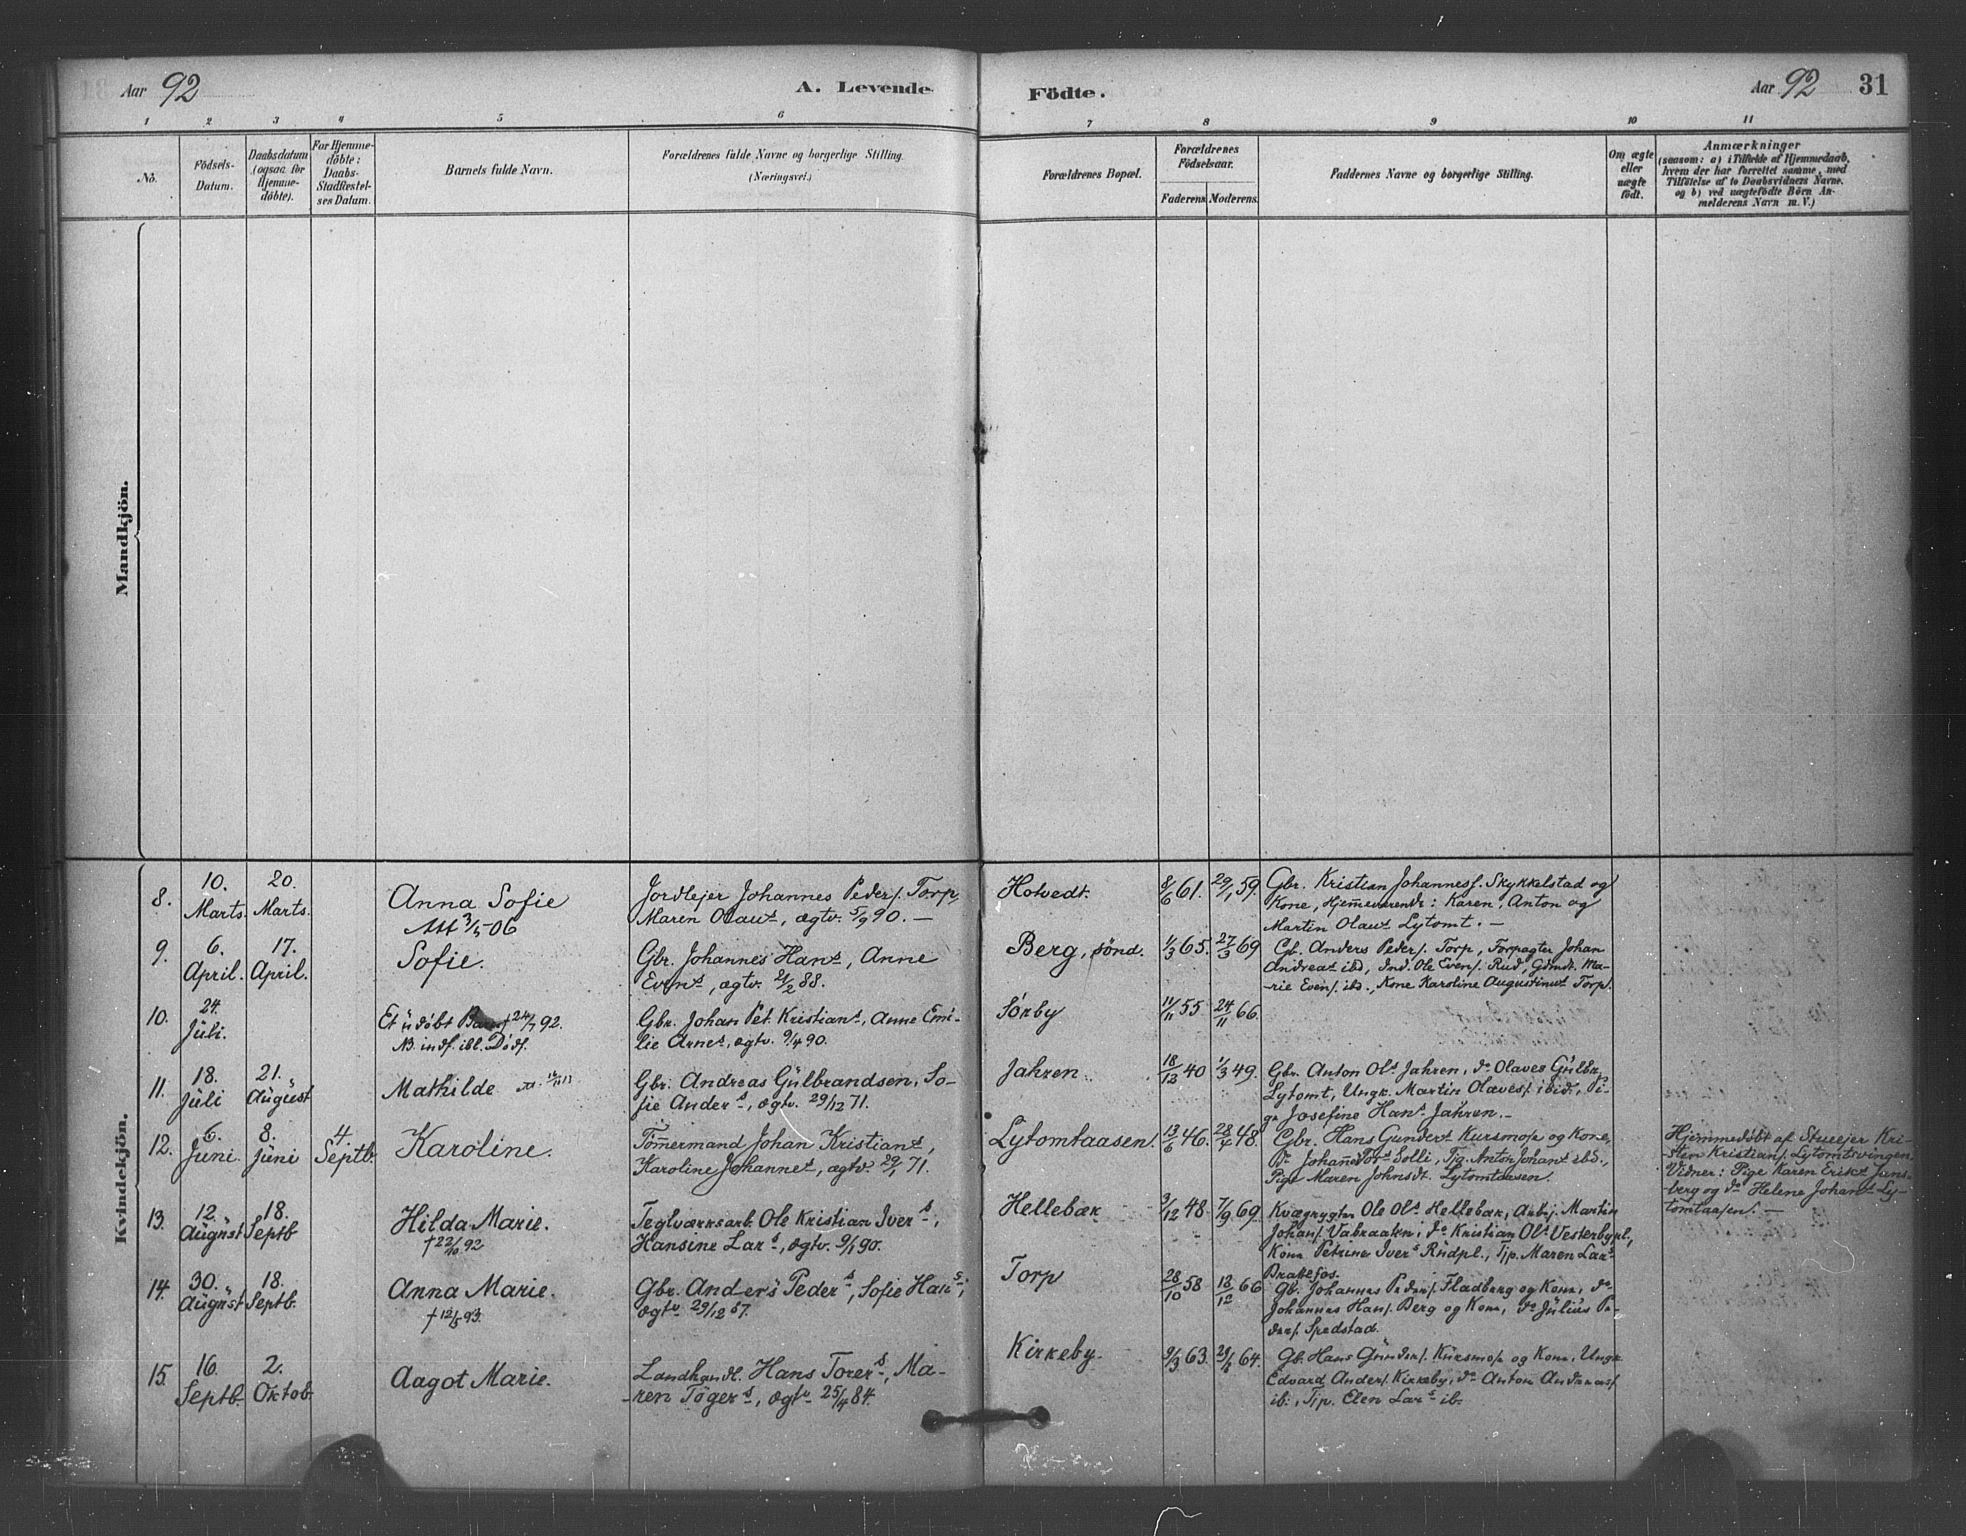 Aar 92
A. Levende
Födte.
Aar 92 31
1 2 3 4 5 6 7 8 9 10 11
No.
Födsels-
Datum.
Daabsdatum
(ogsaa for
Hjemme-
døbte).
For Hjemme-
døbte:
Daabs-
Stadfæstel-
ses Datum.
Barnets fulde Navn.
Forældrenes fulde Navne og borgerlige Stilling.
(Næringsvei.)
Forældrenes Bopæl.
Forældrenes
Födselsaar.
Faderens Moderens.
Faddernes Navne og borgerlige Stilling.
Om ægte
eller
uægte
födt.
Anmærkninger
(saasom: a) i Tilfælde af Hjemmedaab,
hvem der har forrettet samme, med
Tilføielse af to Daabsvidners Navne.
og b) ved uægtefödte Börn An-
melderens Navn m. V.)
Mandkjön.
Kvindekjön.
8.
10.
Marts.
20.
Marts.
Anna Sofie
Att 3/5-06
Jordlejer Johannes Peders. Torp,
Maren Olaus, ægtv. 5/9 90. —
Hotvedt.
8/6 61. 29/1 59.
Gbr. Kristian Johannesf. Skykkelstad og
Kone, Hjemeværende: Karen, Anton og
Martin Olaus Lytomt. —
9.
6.
April.
17.
April.
Sofie.
Gbr. Johannes Hans, Anne
Evens, ægtv. 21/2 88.
Berg, sönd.
1/3 65. 27/3 69
Gb. Anders Peders. Torp, Forpagter Johan
Andreas ibd, Ind. Ole Evens. Rud, Gdmdt. Ma-
rie Evens. ibd., Kone Karoline Augustinus Torp.
10.
24.
Juli.
Et udøbt Barn † 24/7 92.
NB. indf. ibl. Døde.
Gbr. Johan Pet. Kristians, Anne Emi-
lie Arnes, ægtv. 9/4 90.
Sørby
11/11 55 24/11 66.
11.
18.
Juli
21.
August
Mathilde
Gbr. Andreas Gulbrandsen, So-
fie Anders, ægtv. 29/12 71.
Jahren
18/12 40 1/3 49.
Gbr. Anton Ols Jahren, do Olaves Gulbr.
Lytomt, Ungk. Martin Olaves. ibid, Pi-
ge Josefine Hans Jahren. —
12.
6.
Juni.
8.
Juni
4.
Septb.
Karoline.
Tömermand Johan Kristians,
Karoline Johannes, ægtv. 29/1 71.
Lytomtaasen.
13/6 46. 28/4 48.
Gbr. Hans Gunders Kursmose og Kone,
Do Johannes Solli, Tjg. Anton Johans ibd.,
Pige Maren Johnsdt. Lytomtaasen.
Hjemmedøbt af Stueejer Kri-
sten Kristians. Lytomtsvingen.
Vidner: Pige Karen Eriks Juns-
berg og do Helene Johans Ly-
tomtaasen. —
13.
12.
August
18.
Septb
Hilda Marie.
† 22/10 92
Teglværksarb. Ole Kristian Ivers,
Hansine Lars, ægtv. 9/1 90.
Hellebæk
3/12 48 7/9 69
Kvægrygter Ole Ols Hellebæk, Arbj. Martin
Johans. Vabraaten, do Kristian Ols Vesterbypl.,
Kone Petrine Ivers Rudpl., Tjp. Maren Lars
Brattefos.
14.
30.
August
18.
Septb.
Anna Marie.
† 12/5 93.
Gbr. Anders Peders, Sofie Hans,
ægtv. 29/12 87.
Torp
28/10 58 18/12 66
Gb. Johannes Peders. Fladberg og Kone, do
Johannes Hans. Berg og Kone, do Julius Pe-
ders. Spedstad.
15.
16.
Septb.
2.
Oktob.
Aagot Marie.
Landhandl. Hans Torers, Ma-
ren Tögers, ægtv 25/4 84.
Kirkeby
9/3 63. 64.
Gb. Hans Gunders. Kursmose og Kone, Ungk
Edvard Anders. Kirkeby, do Anton Andreas.
ib., Tjp. Elen Lars ib.